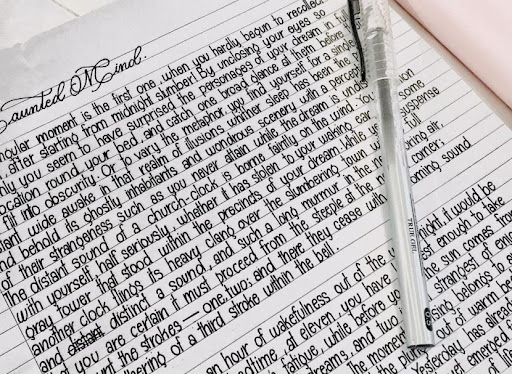 aunted Mind.
ngular moment is the first one, when you hardly begun to recollect
f after starting from midnight slumber! By unclosing your eyes so
nly you seem to have surprised the personages of your dream in full
ocation round your bed and catch one broad glance at them before
flit into obscurity. Or, to vary the metaphor, you find yourself for a single
stant wide awake in that realm of illusions whither sleep has been the
and behold its ghostly inhabitants and wondrous scenery with a percep
of their strangeness such as you never attain while the dream is undis
The distant sound of a church-clock is borne faintly on the wind.
with yourself half seriously, whether it has stolen to your waking ear
gray tower that stood within the precincts of your dream. While suspense
another clock flings its heavy clang over the slumbering town full
and distant distinct a sound, and such a long murmur in the air,
d you are certain it must proceed from the steeple at the corner;
unt the strokes — one, two; and there they cease with oming sound
thering of a third stroke within the bell.
an hour of wakefulness out of the right, it would be
edtime, at eleven, you have est enough to take
fatigue, while before you the sun comes from
dreams, and two strangest of enig
the moment ising, belongs to
the plun out of warm bed
Yesterday has already
yet emerged f
TRUE GEL